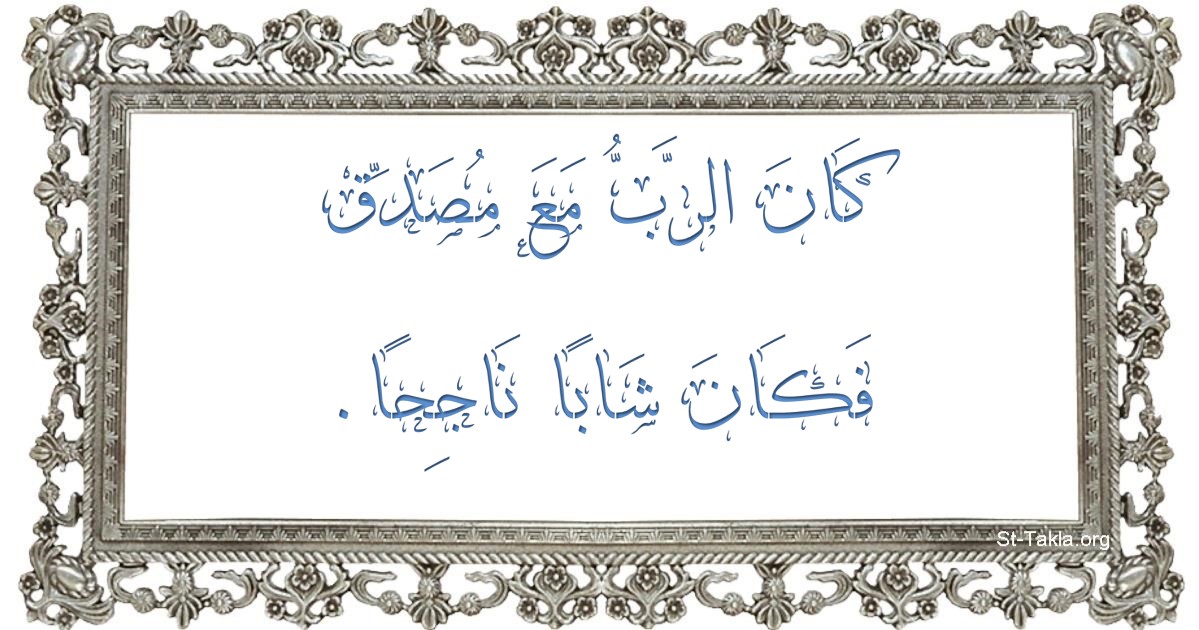 كَانَ الرَّبُّ مَعَ مُصَدِّق
فَكَانَ شَابًا نَاجِحًا .
St-Takla.org